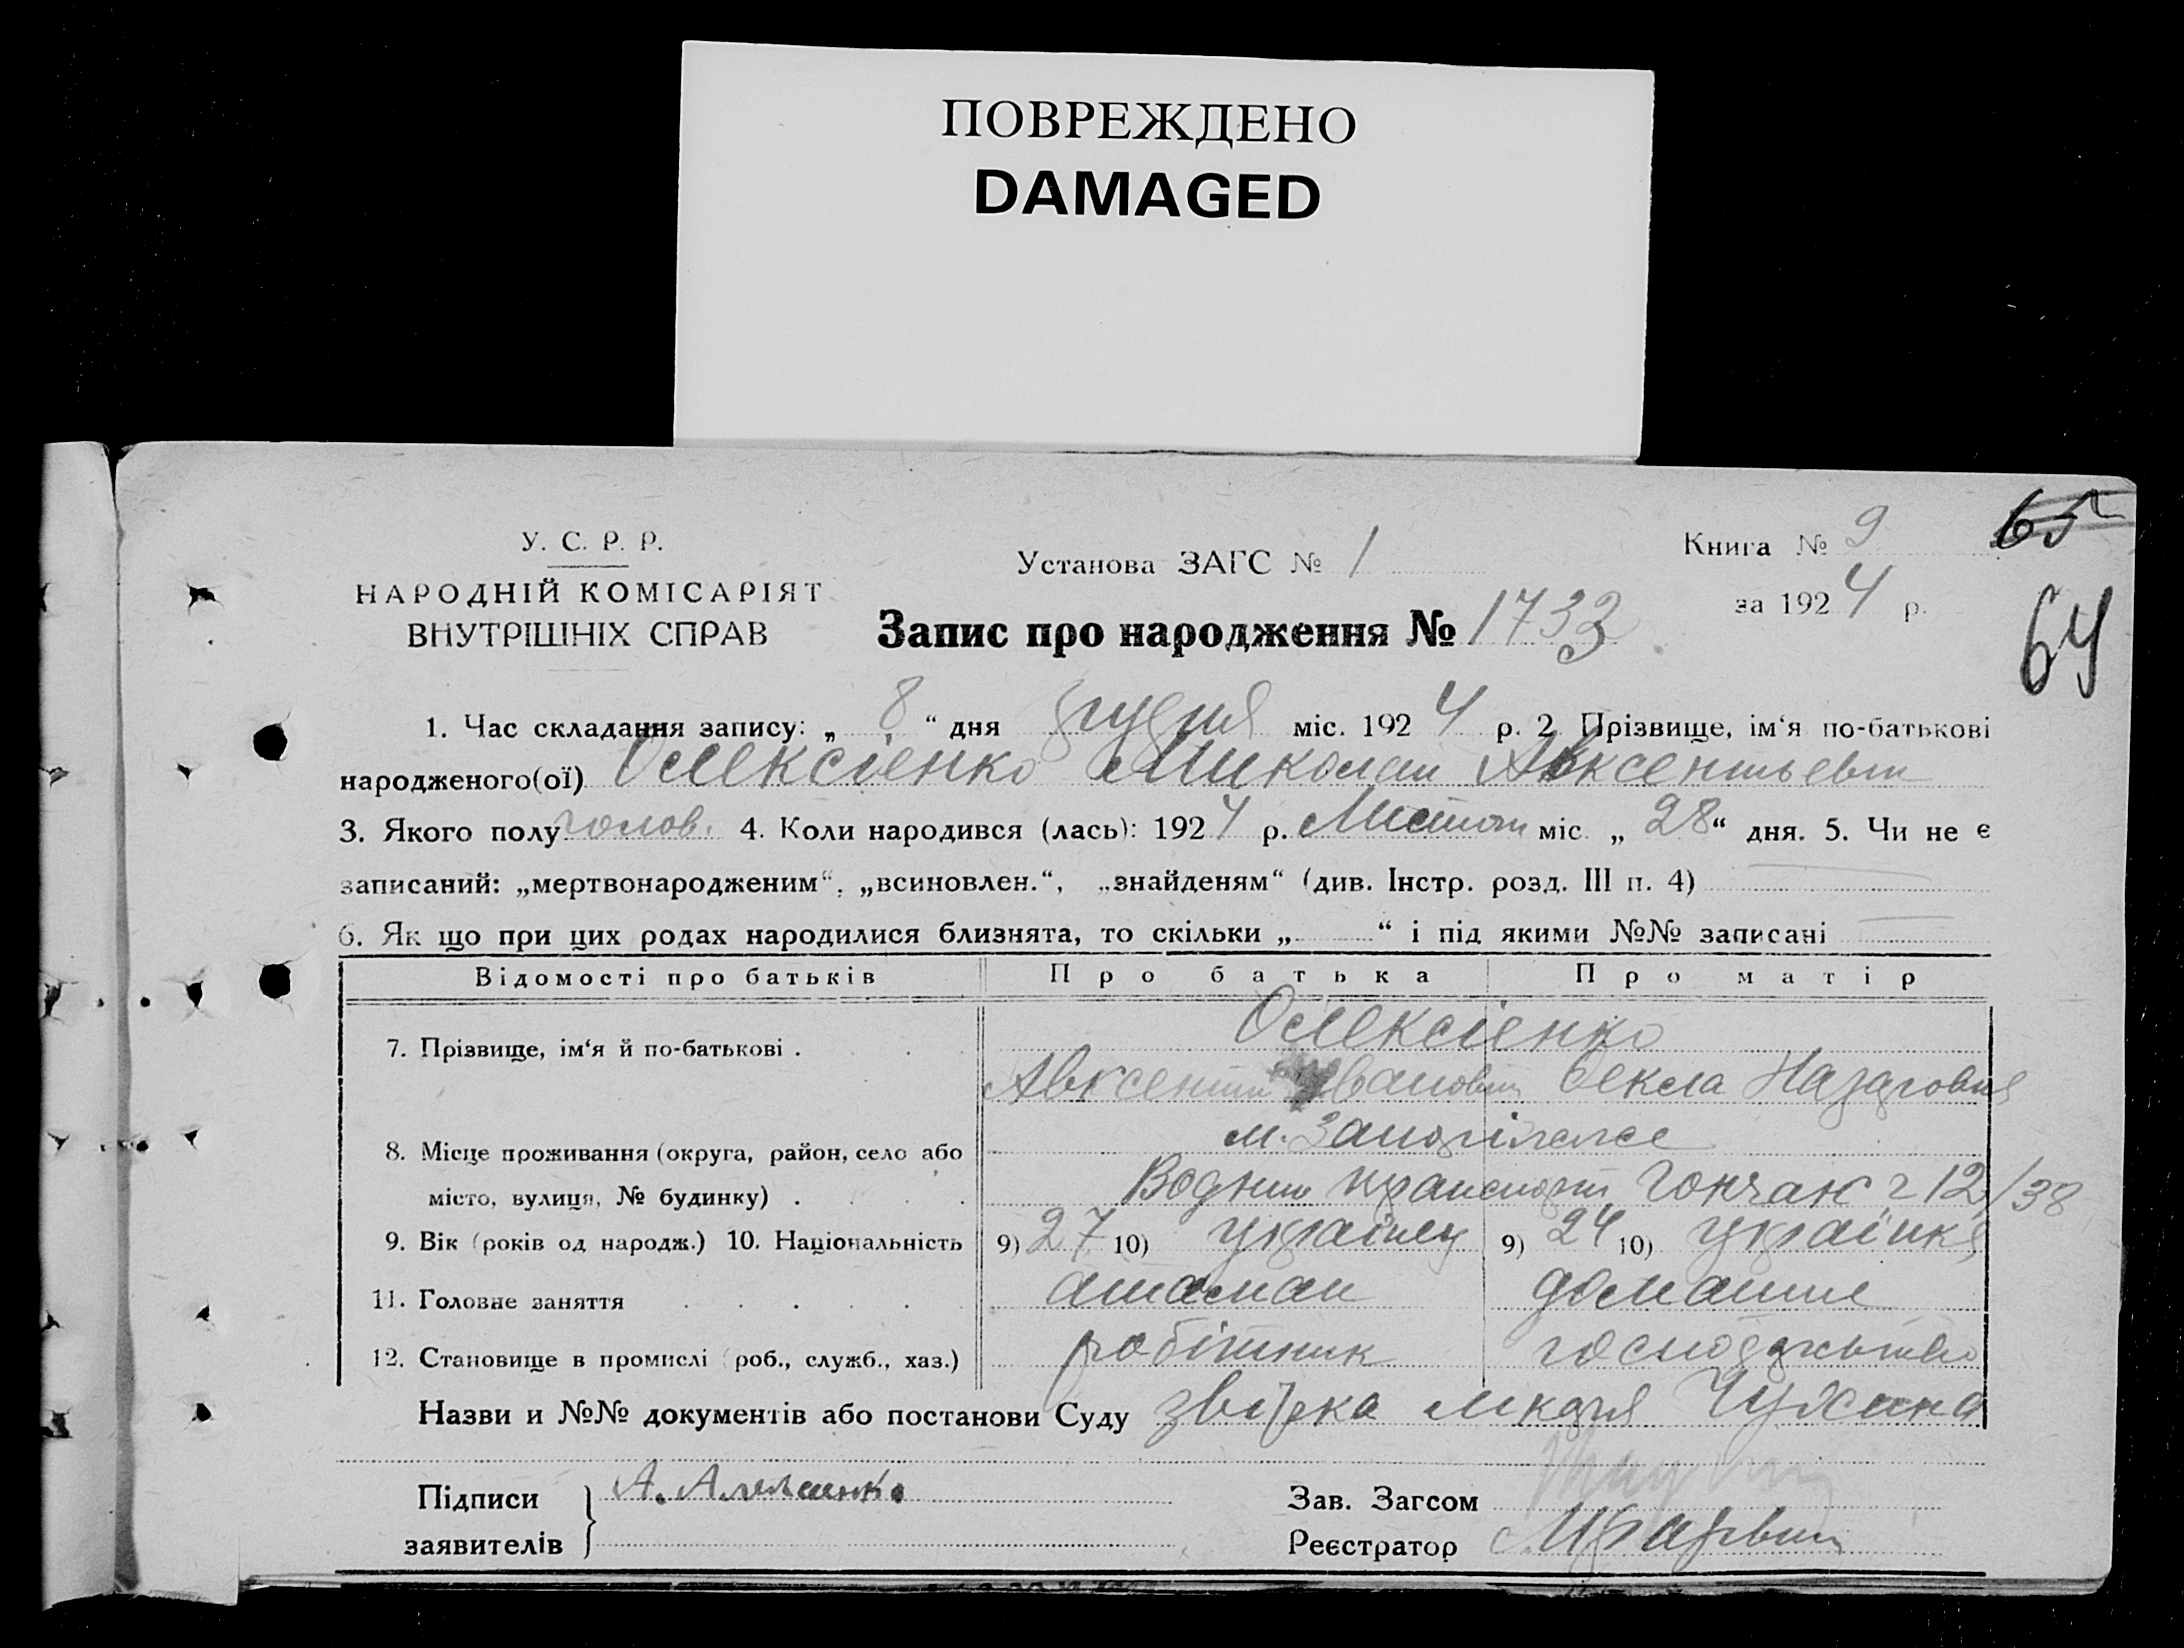 ПОВРЕЖДЕНО
DAMAGED
65
У. С. Р. Р.
НАРОДНІЙ КОМІСАРІЯТ
ВНУТРІШНІХ СПРАВ
Установа ЗАГС № 1
Книга № 9
за 1924 р.
64
Запис про народження № 1733
1. Час складання запису: „ 8 “ дня грудня міс. 1924 р. 2 Прізвище, ім‘я по-батькові
народженого(ої) Олексіенко Миколай Авксентьевич
3. Якого полу голов. 4. Коли народився (лась): 1924 р. Листоп міс. „ 28 “ дня. 5. Чи не є
записаний: „мертвонародженим“, „всиновлен.“, „знайденям“ (див. Інстр. розд. III п. 4)
6. Як що при цих родах народилися близнята, то скільки „ “ і під якими №№ записані
Відомості про батьків Про батька Про матір
7. Прізвище, ім‘я й по-батькові . Олексіенко
Авксентий Иванович Текла Назаровна
8. Місце проживання (округа, район, село або м. Запоріжжє
місто, вулиця, № будинку) . Водний транспорт 12/38
9. Вік (років од народж.) 10. Національність 9) 27 10) українец 9) 24 10) українка
11. Головне заняття отаман домашне
12. Становище в промислі (роб., служб., хаз.) робітник господарьство
Назви и №№ документів або постанови Суду лікаря
Підписи А. Алексиенко
заявителів
Зав. Загсом
Реєстратор